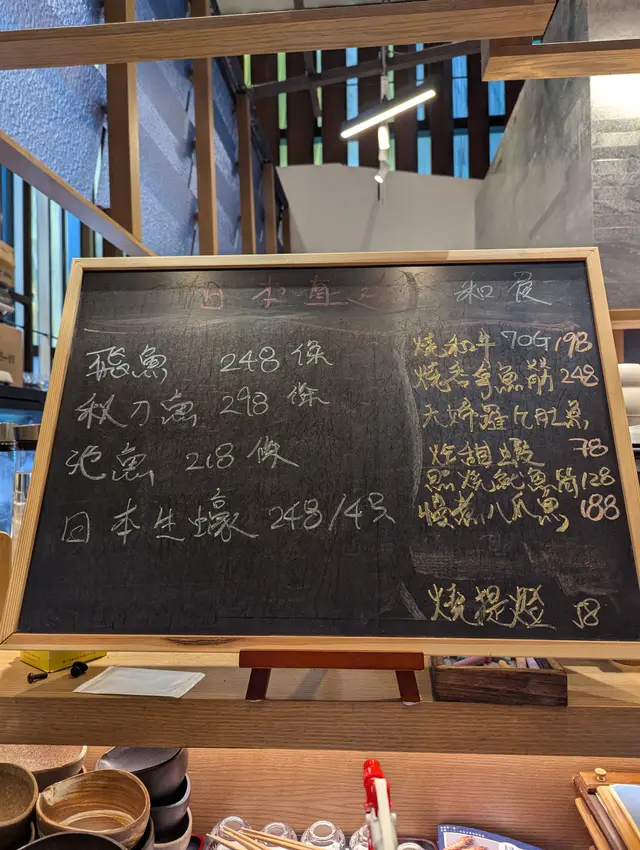 日本直送
飛魚 248 條
秋刀魚 298 條
池魚 218 條
日本生蠔 248/4只
和食
燒和牛 70G 198
燒吞拿魚筋 248
炸甜蝦 78
照燒魷魚筒 128
慢煮八爪魚 188
燒提燈 58